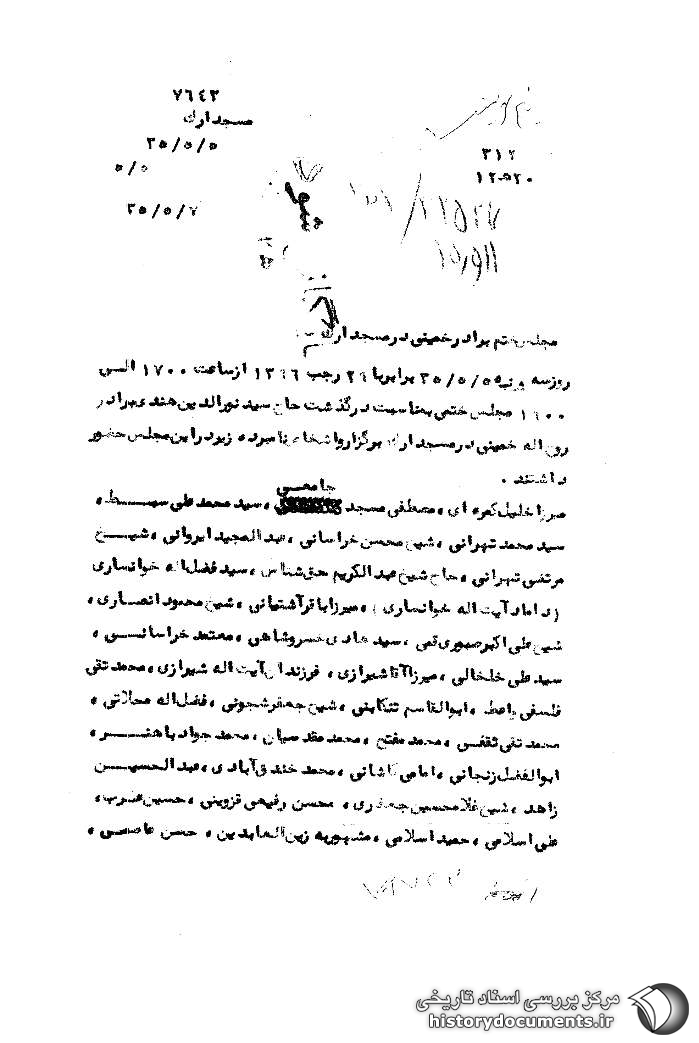 ۷٦٤۳
مسجد ارك
۲۵/۵/۵
۵/۵
۲۵/۵/۷
۳۱۲
۱۲۵۲۰
۱۲۵۲۷
مجلس ختم برادر خمینی در مسجد ارك
روز سه ۲۵/۵/۵ برابر با ۲۹ رجب ۱۳۹٦ از ساعت ۱۷۰۰ الی
مجلس ختمی بمناسبت درگذشت حاج سید نورالدین هندی برادر
روح اله خمینی در مسجد ارك برگزار و اشخاص نامبرده زیر در این مجلس حضور
داشتند .
جامعی
میرزا خلیل کمره ای ، مصطفی مسجد ، سید محمد علی سبط ،
سید محمد تهرانی ، شیخ محسن خراسانی ، عبدالمجید ایروانی ، شیخ
مرتضی تهرانی ، حاج شیخ عبدالکریم حق شناس ، سید فضل اله خوانساری
( داماد آیت اله خوانساری ) ، میرزا باقر آشتیانی ، شیخ محمود انصاری ،
شیخ علی اکبر صبوری قمی ، سید هادی خسروشاهی ، معتمد خراسانی ،
سید علی خلخالی ، میرزا آقا شیرازی ، فرزندان آیت اله شیرازی ، محمد تقی
فلسفی واعظ ، ابوالقاسم تنکابنی ، شیخ جعفر شجونی ، فضل اله محلاتی ،
محمد تقی ثقفی ، محمد مفتح ، محمد مقدسیان ، محمد جواد باهنر ،
ابوالفضل زنجانی ، امامی کاشانی ، محمد خندق آبادی ، عبدالحسین
زاهد ، شیخ غلامحسین جعفری ، محسن رفیعی قزوینی ، حسین مضرب ،
علی اسلامی ، حمید اسلامی ، مشهور به زین العابدین ، حسن عاصمی ،
مرکز بررسی اسناد تاریخی
historydocuments.ir